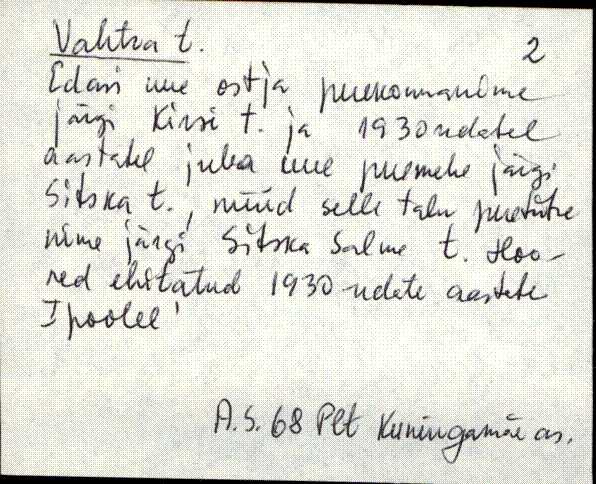 Vahtra t.
2
Edasi uue ostja perekonnanime
järgi Kirsi t. ja 1930ndatel
aastatel juba uue peremehe järgi
Sitska t., nüüd selle talu peretütre
nime järgi Sitska Salme t. Hoo-
ned ehitatud 1930-ndate aastate
I poolel
A.S. 68 Plt Kuningamäe as.